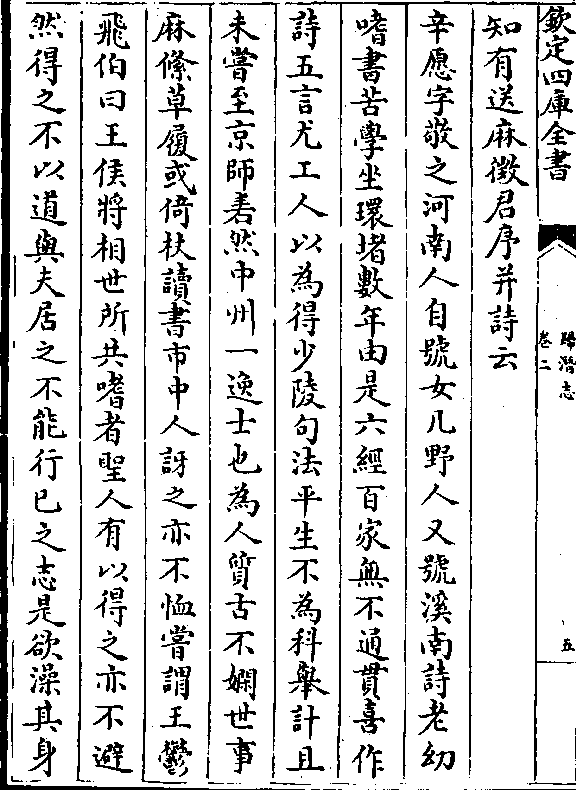 欽定四庫全書
歸潛志
卷二
五
知有送麻徵君序并詩云
辛愿字敬之河南人自號女几野人又號溪南詩老幼
嗜書苦學坐環堵數年由是六經百家無不通貫喜作
詩五言尤工人以為得少陵句法平生不為科舉計且
未嘗至京師𠻘然中州一逸士也為人質古不嫻世事
麻絛草屨或倚杖讀書市中人訝之亦不恤嘗謂王鬱
飛伯曰王侯將相世所共嗜者聖人有以得之亦不避
然得之不以道與夫居之不能行已之志是欲澡其身